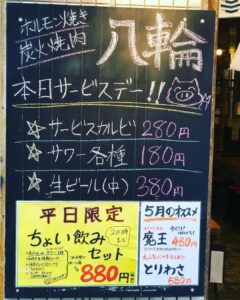 ホルモン焼き
炭火焼肉
八輪
本日サービスデー!!
☆サービスカルビ 280円
☆サワー各種 180円
☆生ビール(中) 380円
平日限定
ちょい飲み
セット
20時まで
880円
5月のオススメ
魔王 480円
とりわさ
580円